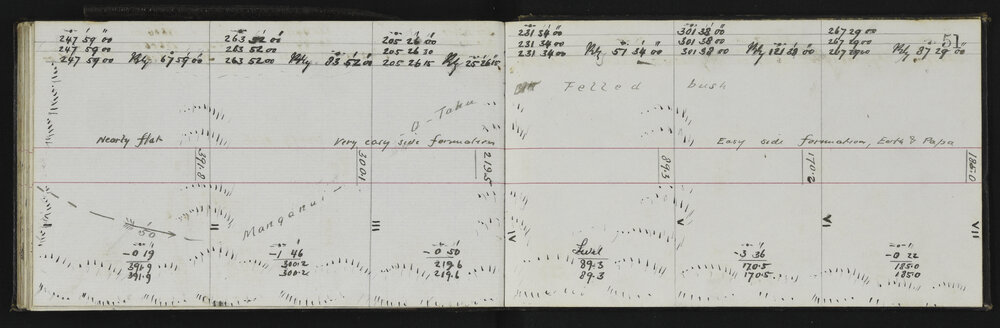 247 59 00
247 59 00
247 59 00 Rly 67 59 00
263 52 00
263 52 00
263 52 00 Rly 83 52 00
205 26 00
205 26 30
205 26 15 Rly 25 26 15
231 34 00
231 34 00
231 34 00 Rly 51 34 00
301 38 00
301 38 00
301 38 00 Rly 121 38 00
267 29 00
267 29 00
267 29 00 Rly 87 29 00
51
Felled bush
O-Tahu
Nearly flat
Very easy side formation
Easy side formation, Earth & Papa
391.8
300.1
219.5
89.3
170.2
185.0
Manganui
50
II
III
IV
V
VI
VII
-0 19
391.9
391.9
-1 46
300.2
300.2
-0 50
219.6
219.6
Level
89.3
89.3
-3 36
170.5
170.5
-0 22
185.0
185.0